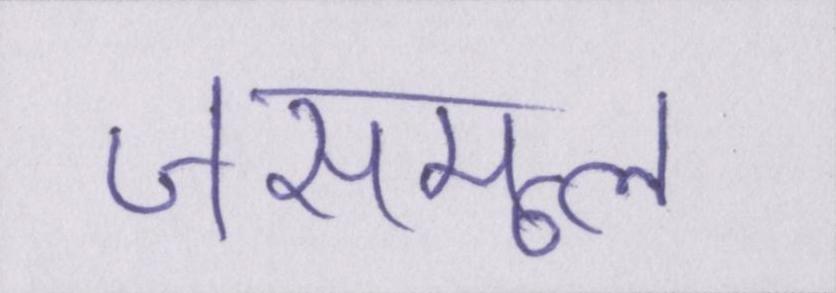 जसमूल